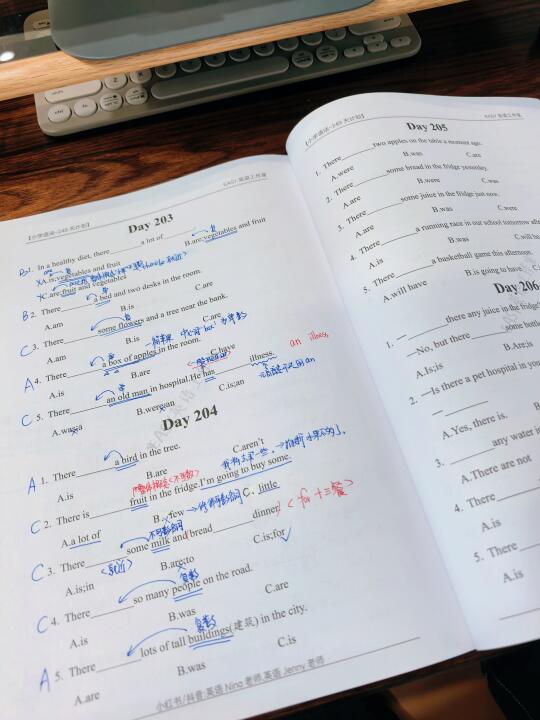 【小学语法·245天计划】
EASY 英语工作室
Day 203
B 1. In a healthy diet, there________a lot of________.
A.is;vegetables and fruit
B.are;vegetables and fruit
C.are;fruit and vegetables
B 2. There________a bed and two desks in the room.
A.am
B.is
C.are
C 3. There________some flowers and a tree near the bank.
A.am
B.is
C.are
A 4. There________a box of apples in the room.
A.is
B.are
C.have
C 5. There________an old man in hospital.He has________illness.
an illness
A.was;a
B.were;an
C.is;an
Day 204
A 1. There________a bird in the tree.
A.is
B.are
C.aren't
C 2. There is________fruit in the fridge.I'm going to buy some.
A.a lot of
B. few
C. little
C 3. There________some milk and bread________dinner.
A.is;in
B.are;to
C.is;for
C 4. There________so many people on the road.
复数
A.is
B.was
C.are
A 5. There________lots of tall buildings(建筑) in the city.
复数
A.are
B.was
C.is
小红书/抖音:英语 Nina 老师,英语 Jenny 老师
【小学语法·245天计划】
EASY 英语工作室
Day 205
1. There________two apples on the table a moment ago.
A.were
B.was
C.are
2. There________some bread in the fridge yesterday.
A.are
B.were
C.was
3. There________some juice in the fridge just now.
A.are
B.was
C.were
4. There________a running race in our school tomorrow
A.is
B.was
C.will
5. There________a basketball game this afternoon.
A.will have
B.is going to have
Day 206
1. —________there any juice in the fridge
—No, but there________some
A.Is;is
B.Are;is
2. —Is there a pet hospital in your
—________
A.Yes, there is.
3. ________any water
A.There are not
4. There
A.is
5. There
A.is